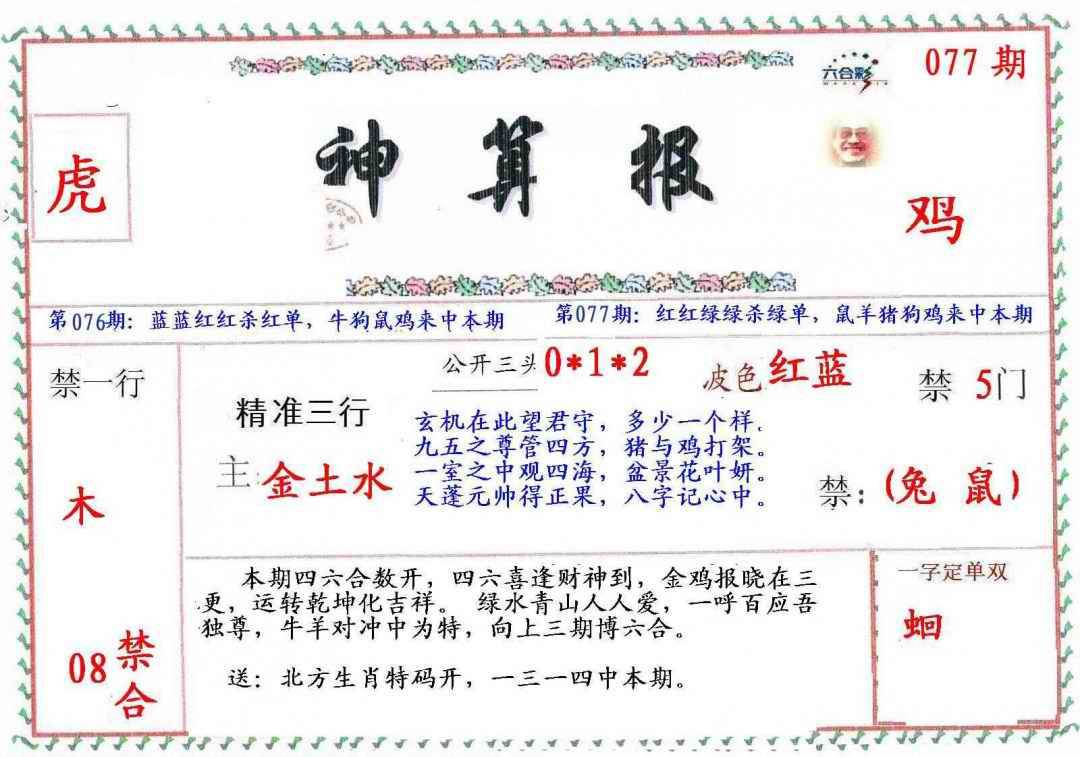 六合彩
077 期
虎
神算报
鸡
第076期：蓝蓝红红杀红单，牛狗鼠鸡来中本期
第077期：红红绿绿杀绿单，鼠羊猪狗鸡来中本期
禁一行
木
08 禁合
精准三行
主：金土水
公开三头 0*1*2
波色 红蓝
禁 5门
玄机在此望君守，多少一个样。
九五之尊管四方，猪与鸡打架。
一室之中观四海，盆景花叶妍。
天蓬元帅得正果，八字记心中。
禁：(兔 鼠)
本期四六合数开，四六喜逢财神到，金鸡报晓在三
更，运转乾坤化吉祥。 绿水青山人人爱，一呼百应吾
独尊，牛羊对冲中为特，向上三期博六合。
送：北方生肖特码开，一三一四中本期。
一字定单双
蛔